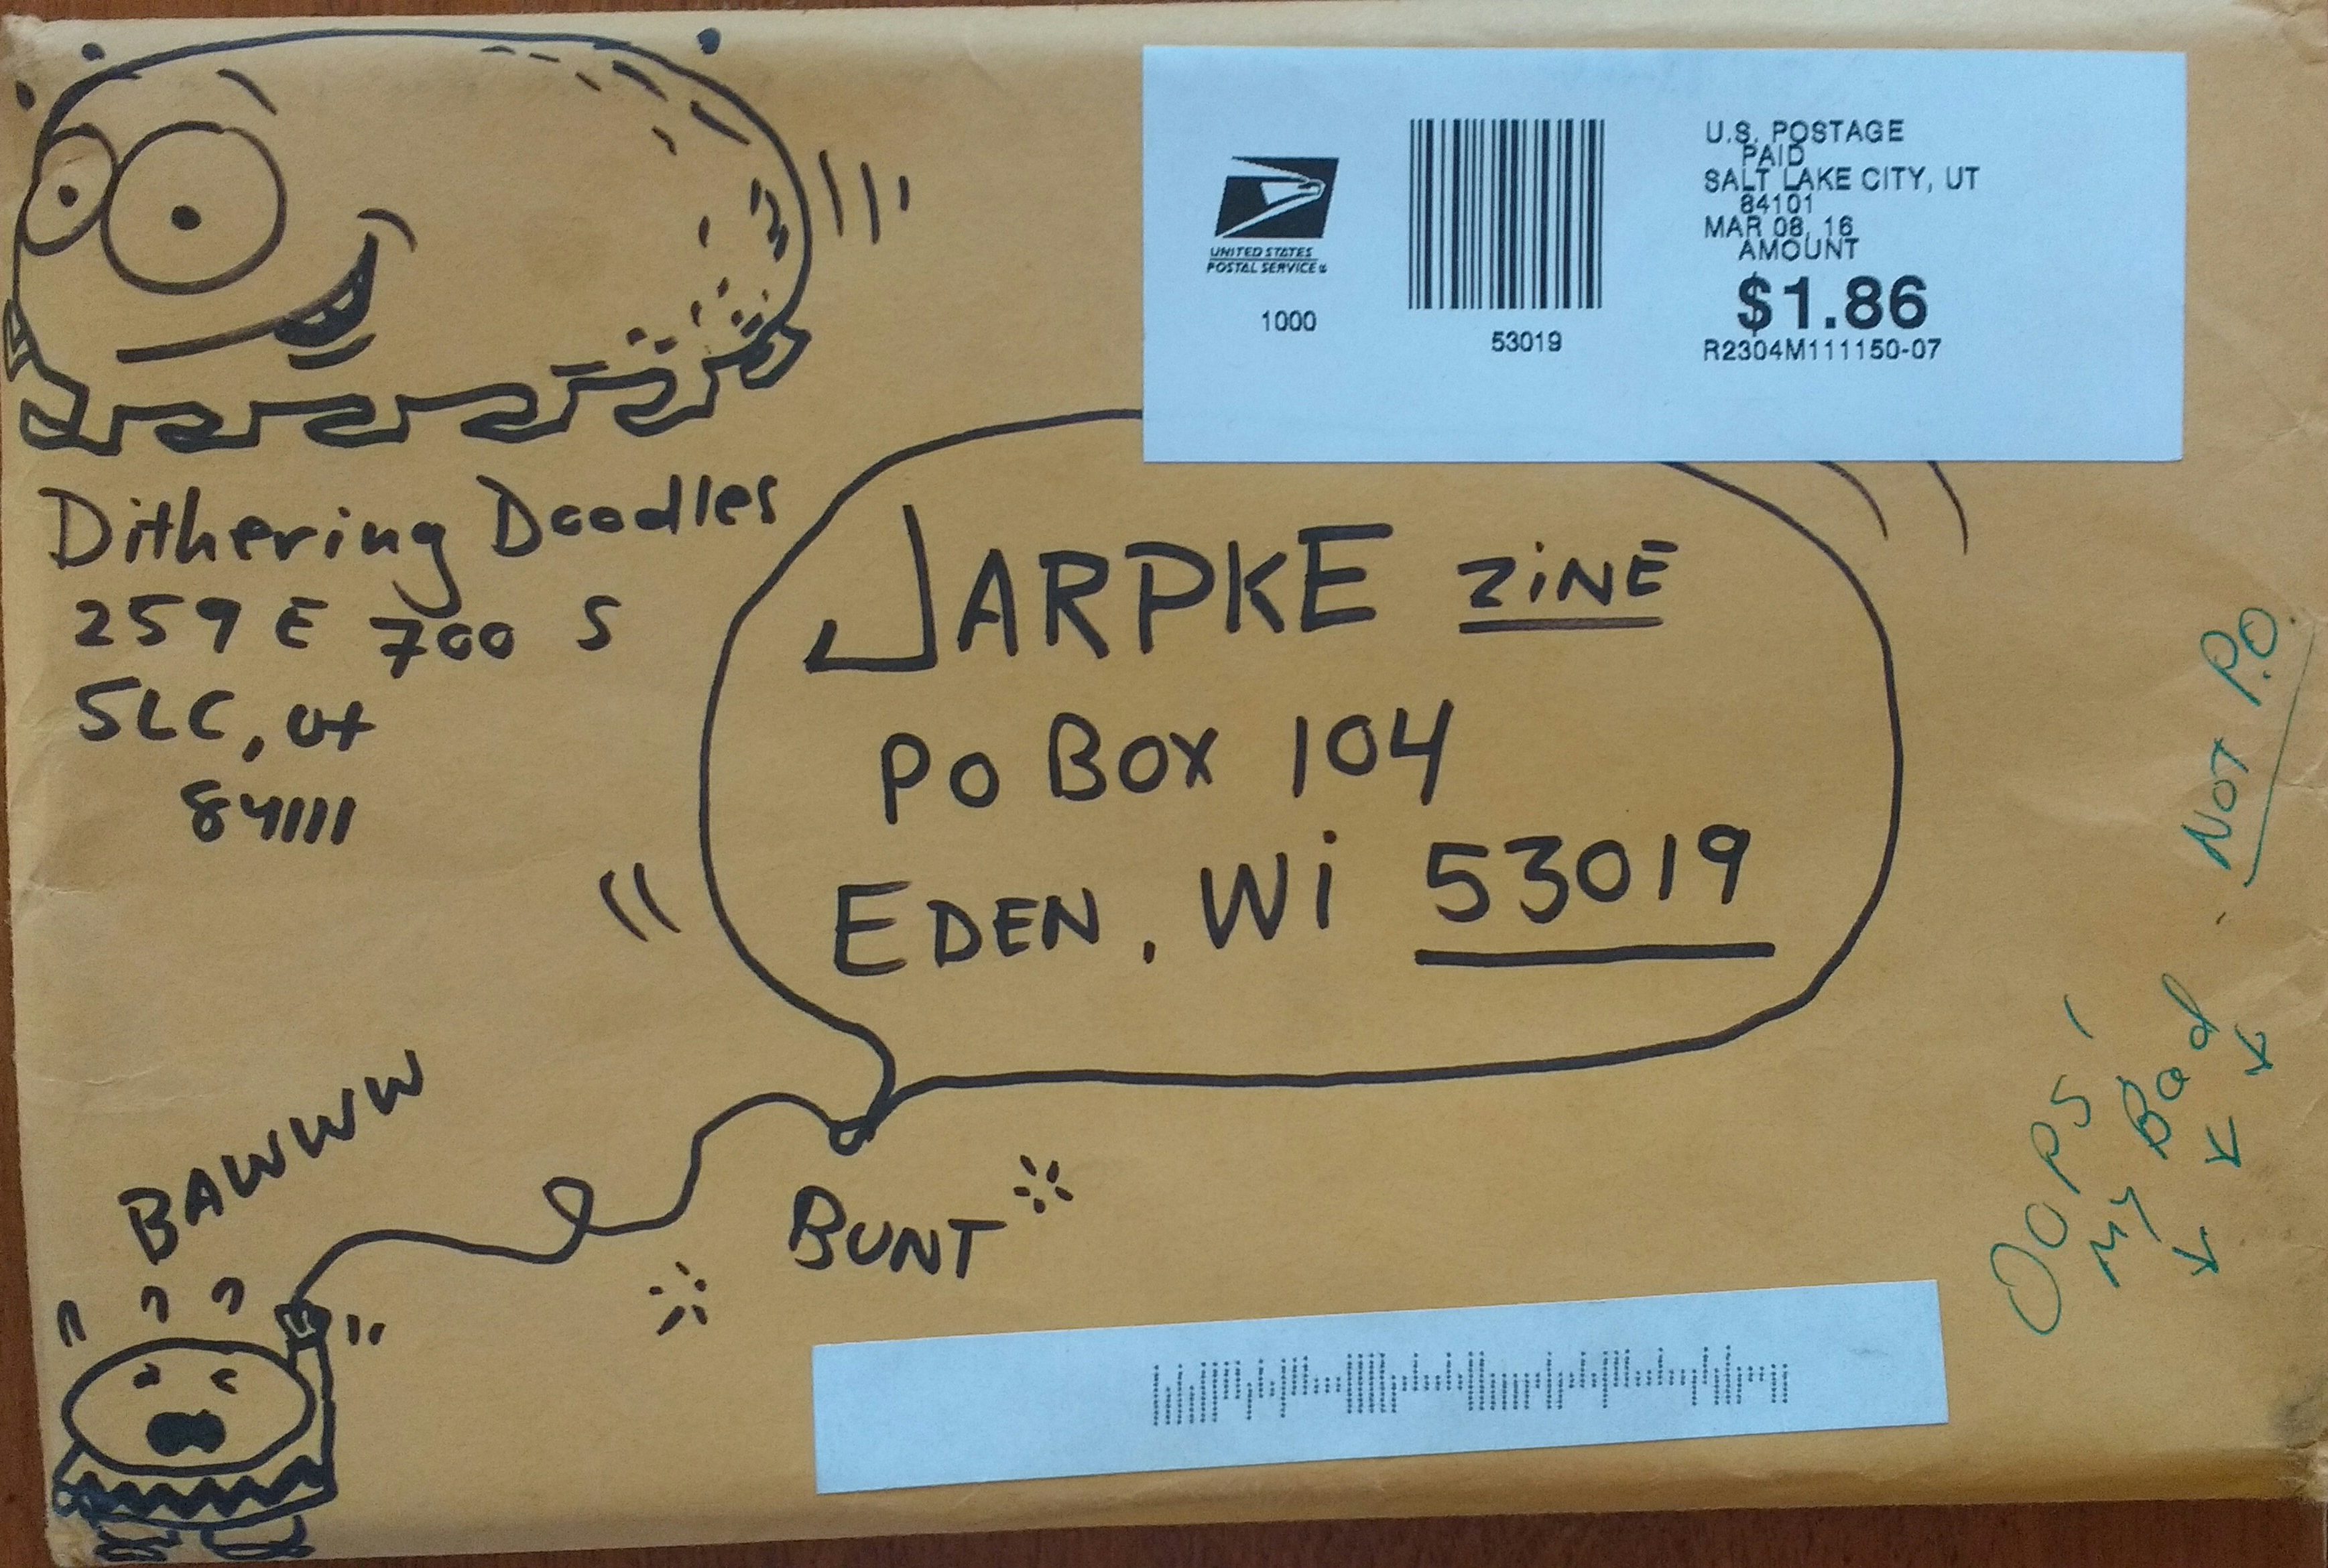 UNITED STATES
POSTAL SERVICE®
1000
53019
U.S. POSTAGE
PAID
SALT LAKE CITY, UT
84101
MAR 08, 16
AMOUNT
$1.86
R2304M111150-07
Dithering Doodles
259 E 700 S
SLC, Ut
84111
JARPKE ZiNE
PO BOX 104
EDEN, Wi 53019
BAWWW
BUNT
OOPS!
My Bad - NOT P.O.